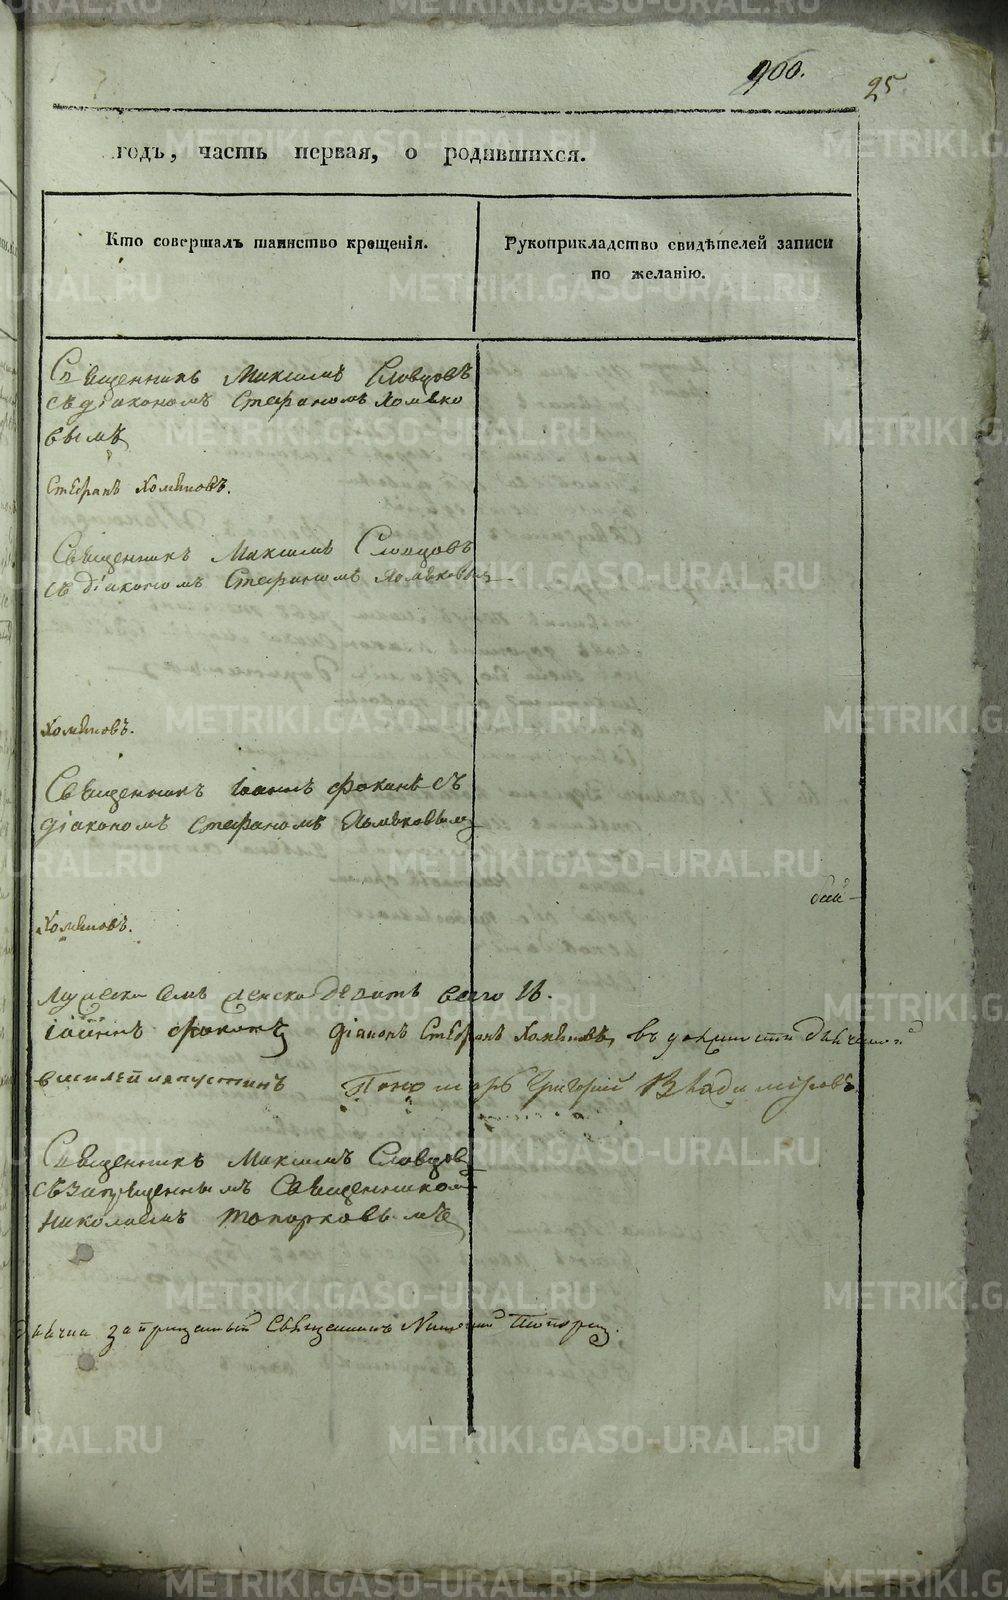 900.
25
годъ, часть первая, о родившихся.
Кто совершалъ таинство крещенія.
Рукоприкладство свидѣтелей записи
по желанію.
Священникъ Максимъ Словцовъ
съ діакономъ Стефаномъ Хомяко
вымъ
Стефанъ Хомяковъ.
Священникъ Максимъ Словцовъ
съ діакономъ Стефаномъ Хомяковым
Хомяковъ.
Священникъ Іоаннъ Фокинъ съ
діакономъ Стефаномъ Хомяковымъ
Хомяковъ.
Мужеска семь женска девять всего 16.
Іоаннъ Фокинъ діаконъ Стефанъ Хомяковъ въ должности дьячка
Василей Пономарь Григорій Владимировъ
Священникъ Максимъ Словцовъ
съ запрещеннымъ Священникомъ
Николаемъ Топорковымъ
дьячка запрещенный Священникъ Николай
METRIKI.GASO-URAL.RU